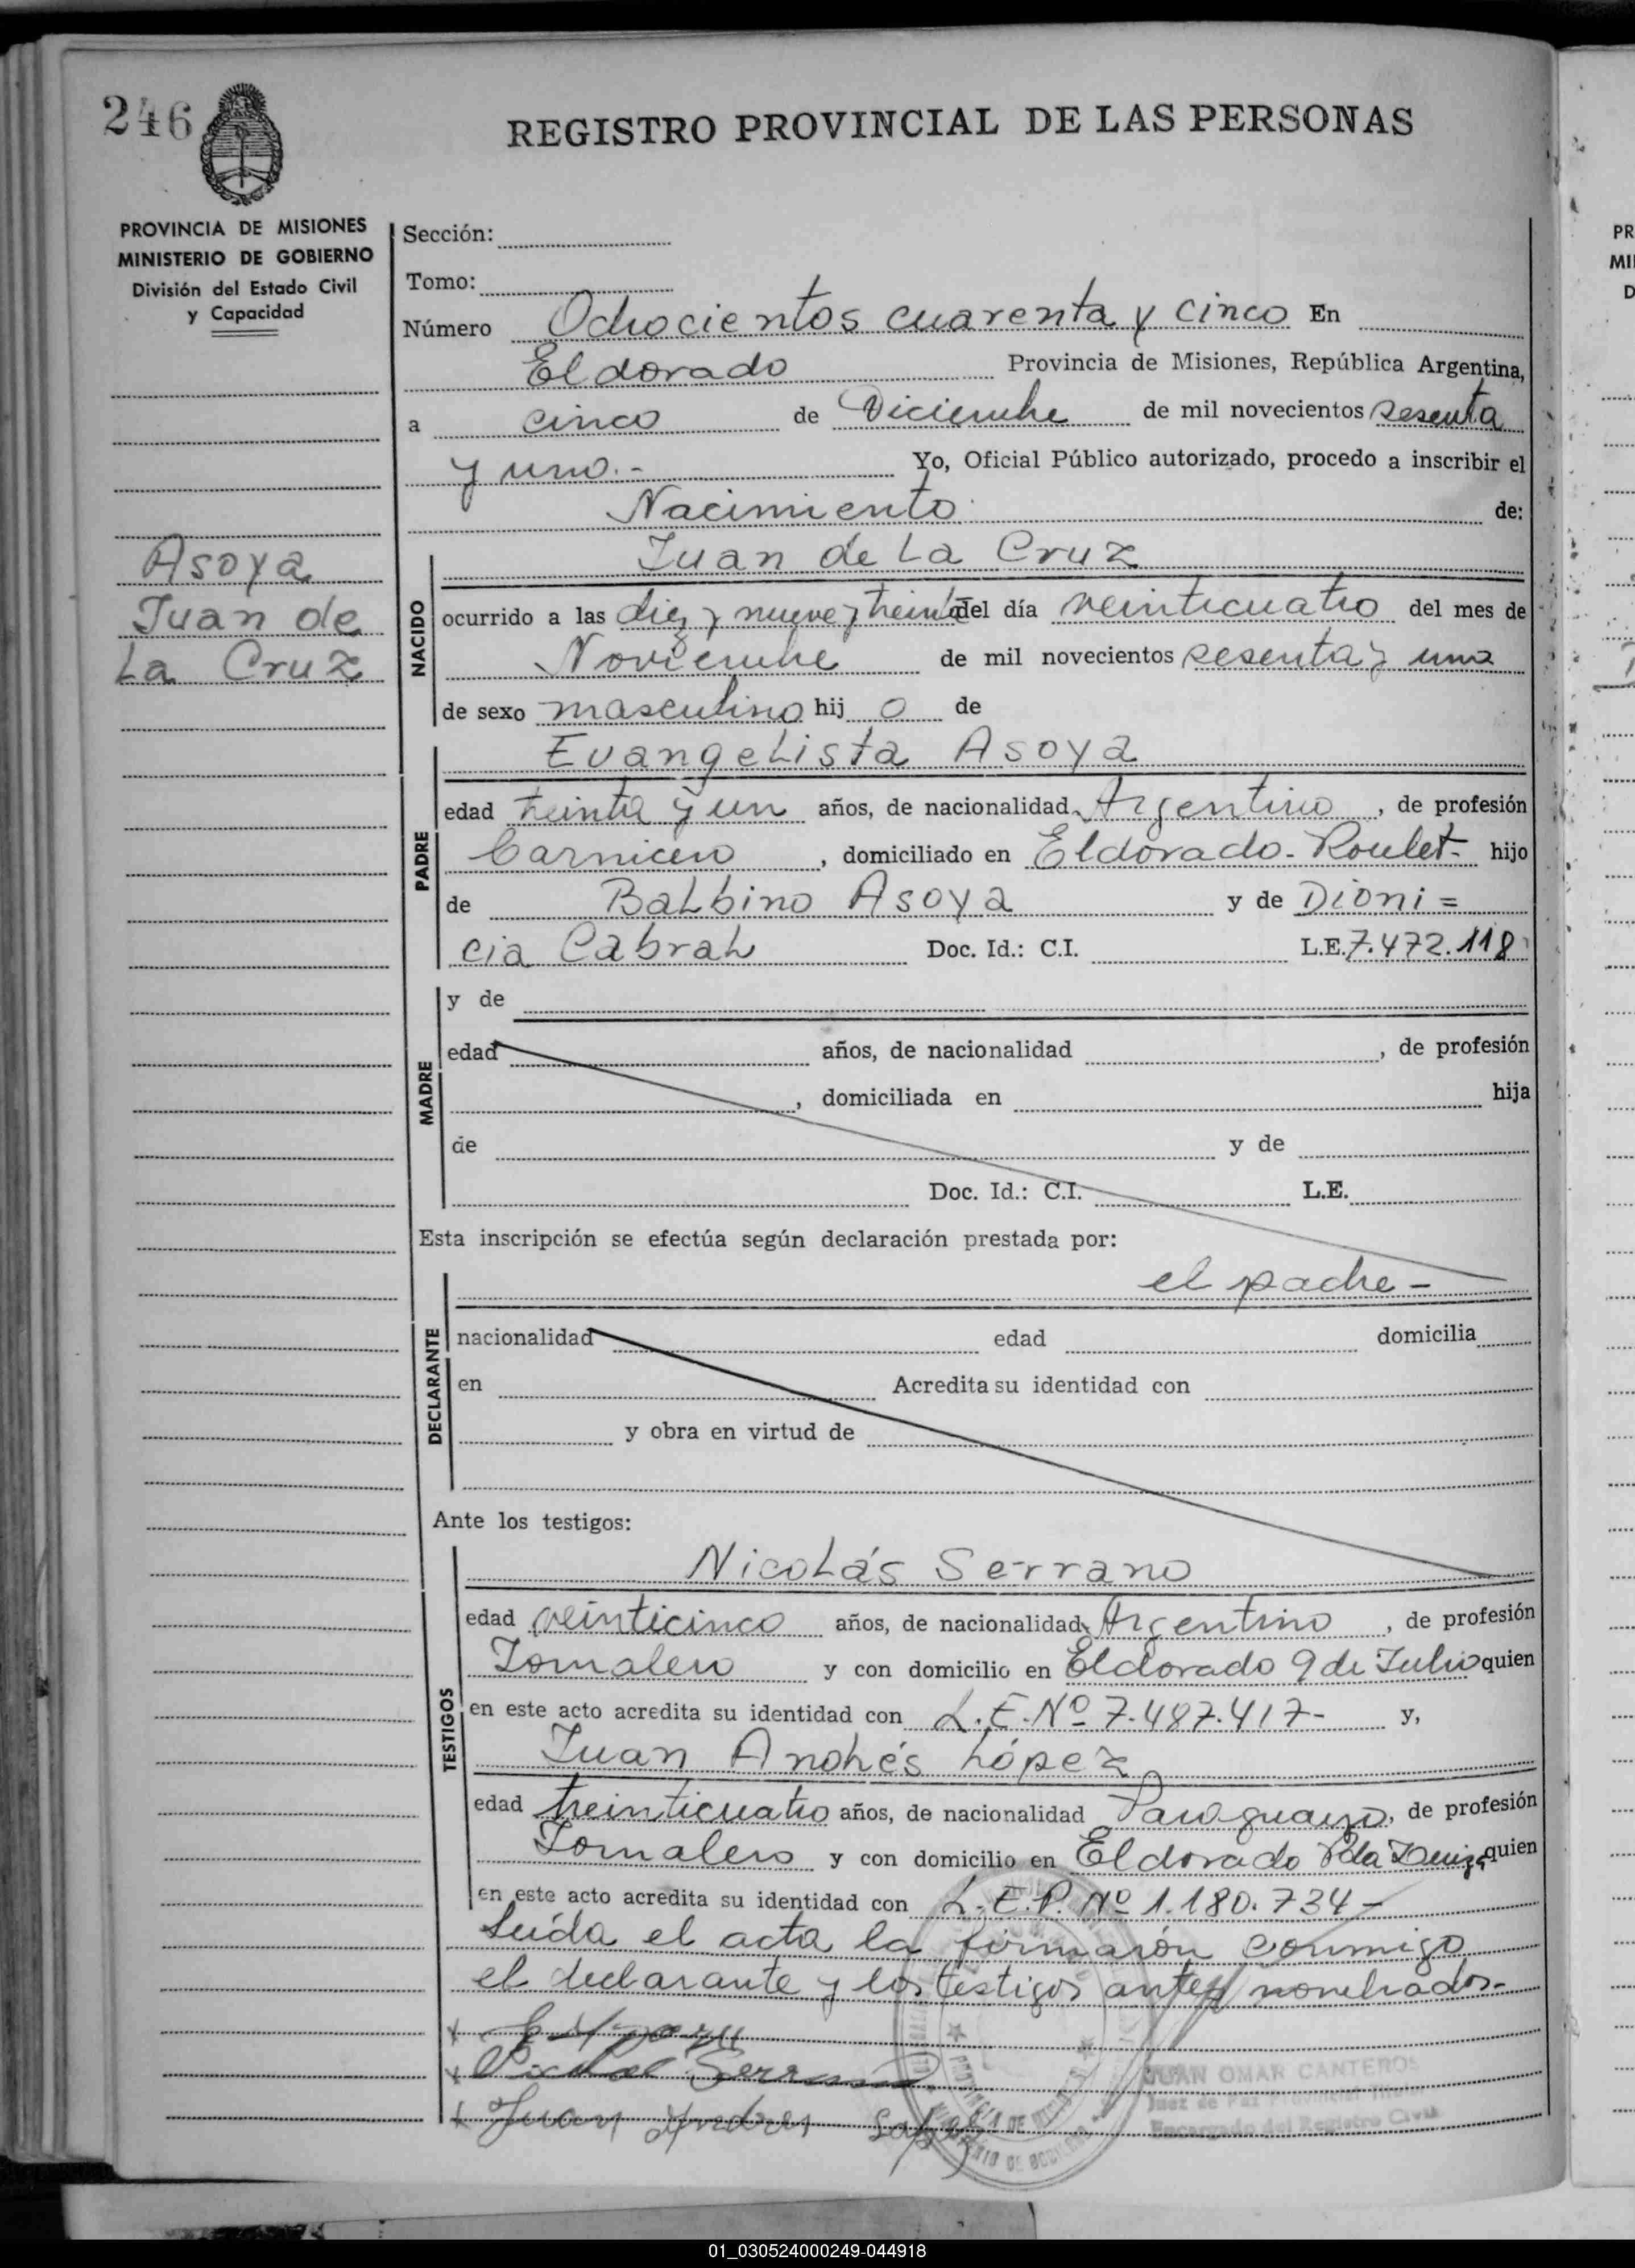 246
REGISTRO PROVINCIAL DE LAS PERSONAS
PROVINCIA DE MISIONES
MINISTERIO DE GOBIERNO
División del Estado Civil
y Capacidad
Asoya
Juan de
La Cruz
Sección:
Tomo:
Número Ochocientos cuarenta y cinco En
Eldorado Provincia de Misiones, República Argentina,
a cinco de Diciembre de mil novecientos sesenta
y uno.- Yo, Oficial Público autorizado, procedo a inscribir el
Nacimiento de:
NACIDO
Juan de La Cruz
ocurrido a las diez y nueve y treinta del día veinticuatro del mes de
Noviembre de mil novecientos sesenta y uno
de sexo masculino hijo de
PADRE
Evangelista Asoya
edad treinta y un años, de nacionalidad Argentino, de profesión
Carnicero, domiciliado en Eldorado-Roulet- hijo
de Balbino Asoya y de Dioni=
cia Cabral Doc. Id.: C.I. L.E. 7.472.118
MADRE
y de
edad años, de nacionalidad , de profesión
, domiciliada en hija
de y de
Doc. Id.: C.I. L.E.
Esta inscripción se efectúa según declaración prestada por:
el padre-
DECLARANTE
nacionalidad edad domicilia
en Acredita su identidad con
y obra en virtud de
Ante los testigos:
TESTIGOS
Nicolás Serrano
edad veinticinco años, de nacionalidad Argentino, de profesión
Jornalero y con domicilio en Eldorado 9 de Julio quien
en este acto acredita su identidad con L.E. Nº 7.487.417- y,
Juan Andrés López
edad treinticuatro años, de nacionalidad Paraguayo, de profesión
Jornalero y con domicilio en Eldorado quien
en este acto acredita su identidad con L.E.P. Nº 1.180.734-
Leída el acta la firmaron conmigo
el declarante y los testigos antes nombrados-
Serrano
Juan Andres Lopez
JUAN OMAR CANTEROS
Juez de Paz Provincial
Encargado del Registro Civil
PROVINCIA DE MISIONES
MINISTERIO DE GOBIERNO
PR
MI
D
01_030524000249-044918